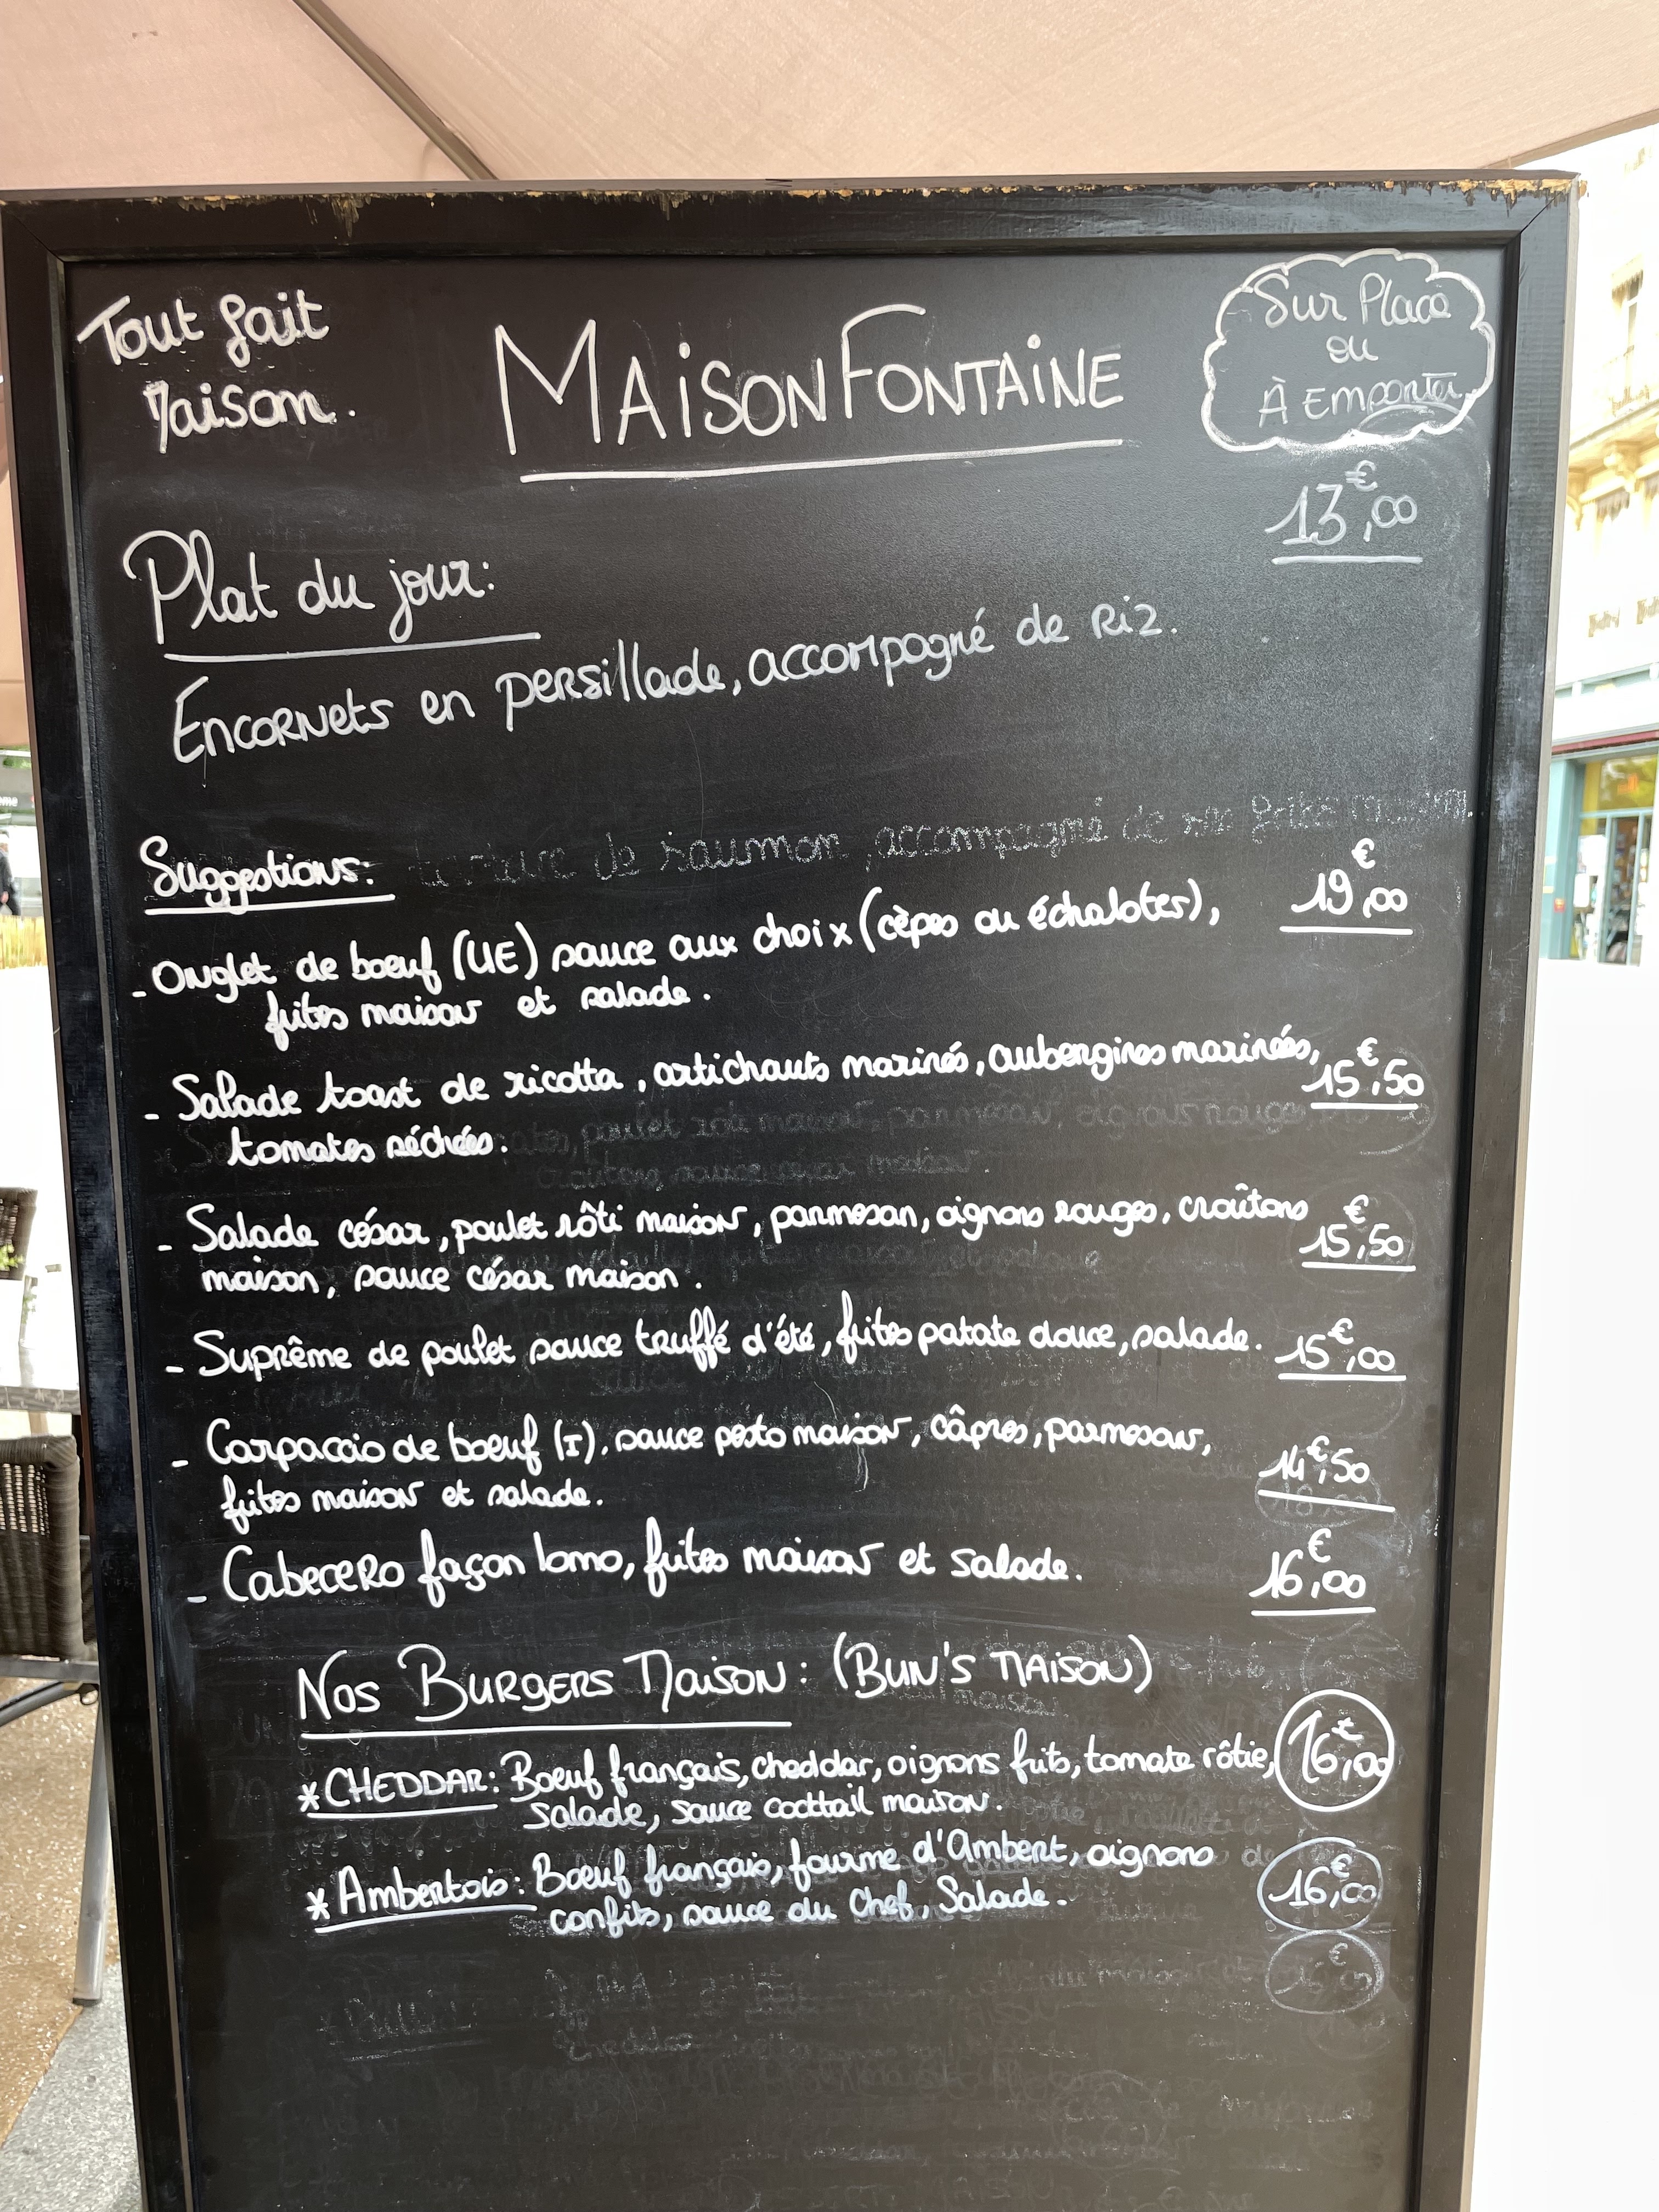 Tout fait
Maison.
MAISON FONTAINE
Sur Place
ou
À Emporter
13€,00
Plat du jour:
Encornets en persillade, accompagné de Riz.
Suggestions:
de saumon, accompagné de
19€,00
- Onglet de boeuf (UE) sauce aux choix (cèpes ou échalotes),
frites maison et salade.
- Salade toast de ricotta, artichauts marinés, aubergines marinées, 15€,50
tomates séchées.
- Salade césar, poulet rôti maison, parmesan, oignons rouges, croûtons 15€,50
maison, sauce césar maison.
- Suprême de poulet sauce truffé d'été, frites patate douce, salade. 15€,00
- Carpaccio de boeuf (I), sauce pesto maison, câpres, parmesan, 14€,50
frites maison et salade.
- Cabecero façon lomo, frites maison et salade. 16€,00
Nos Burgers Maison: (Bun's Maison)
* CHEDDAR: Boeuf français, cheddar, oignons frits, tomate rôtie, 16€,00
salade, sauce cocttail maison.
* Ambertois: Boeuf français, fourme d'Ambert, oignons 16€,00
confits, sauce du Chef, Salade.